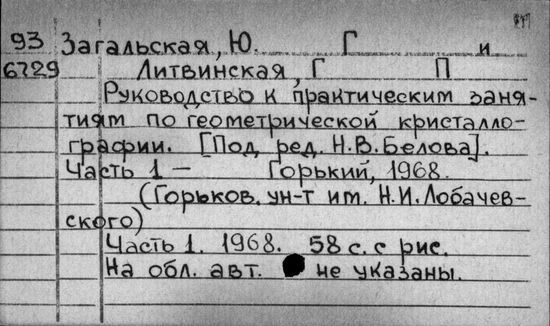 93 Загальская, Ю. Г и
6729 Литвинская, Г П
Руководство к практическим заня-
тиям по геометрической кристалло-
графии. [Под ред. Н.В. Белова].
Часть 1 — Горький, 1968.
(Горьков. ун-т им. Н.И. Лобачев-
ского)
Часть 1. 1968. 58 с. с рис.
На обл. авт. не указаны.